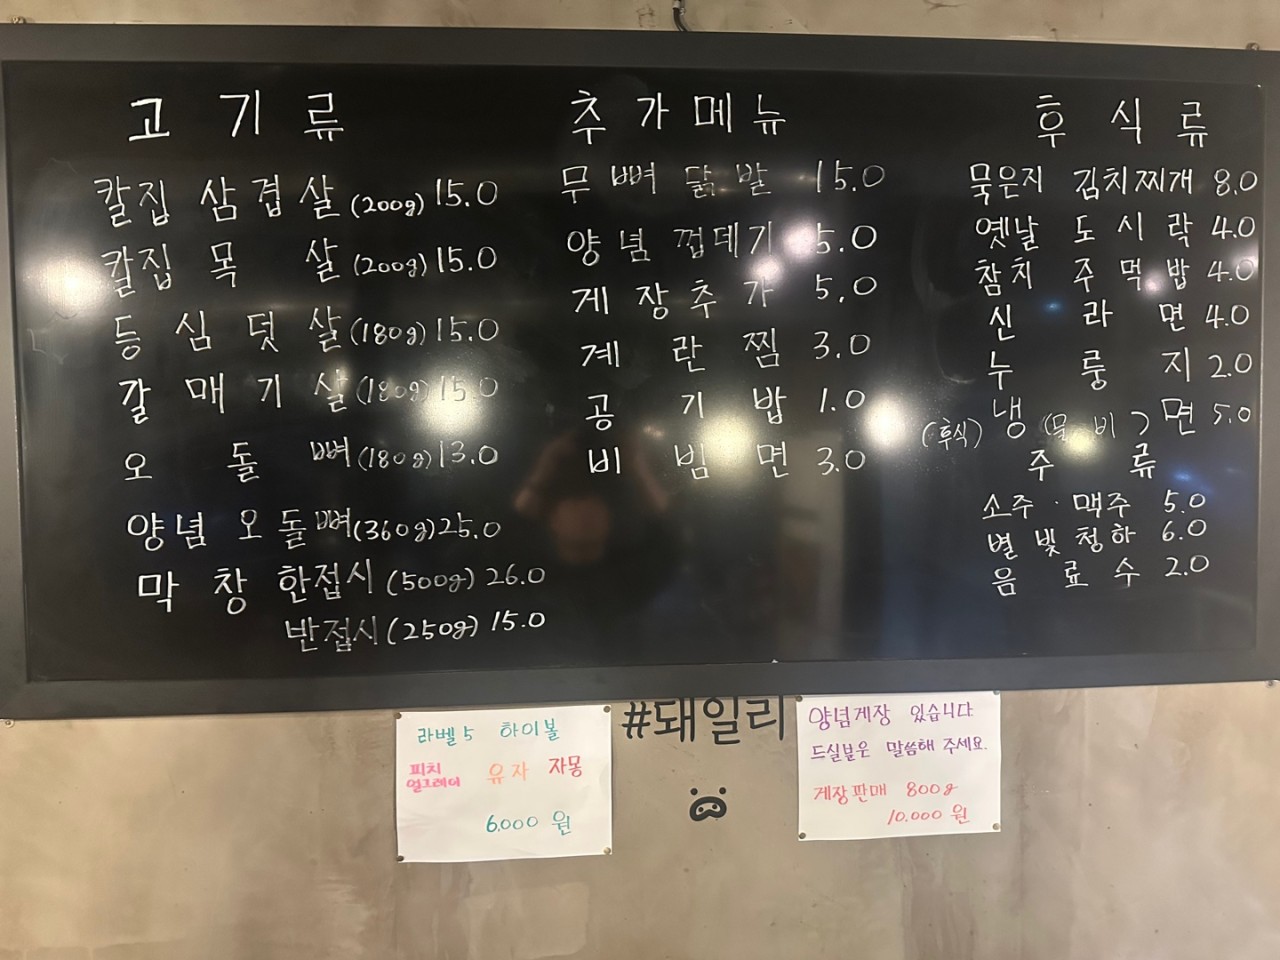 고기류
칼집 삼겹살 (200g) 15.0
칼집 목살 (200g) 15.0
등심덧살 (180g) 15.0
갈매기살 (180g) 15.0
오돌뼈 (180g) 13.0
양념 오돌뼈 (360g) 25.0
막창 한접시 (500g) 26.0
반접시 (250g) 15.0
추가메뉴
무뼈 닭발 15.0
양념 껍데기 5.0
게장추가 5.0
계란찜 3.0
공기밥 1.0
비빔면 3.0
후식류
묵은지 김치찌개 8.0
옛날 도시락 4.0
참치 주먹밥 4.0
신라면 4.0
누룽지 2.0
(후식) 냉 (물, 비) 면 5.0
주류
소주·맥주 5.0
별빛청하 6.0
음료수 2.0
라벨5 하이볼
피치 유자 자몽
얼그레이
6.000 원
#돼일리
양념게장 있습니다.
드실분은 말씀해 주세요.
게장판매 800g
10.000 원